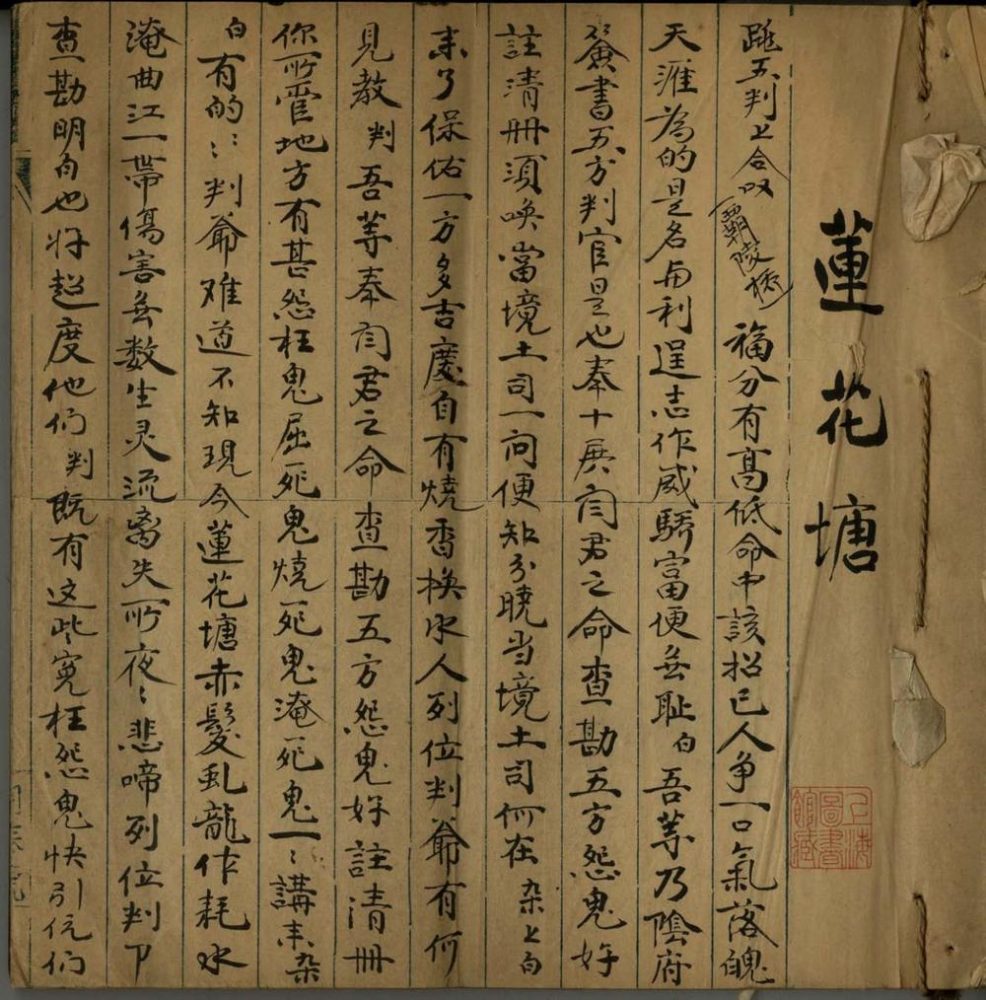 蓮花塘
跳五判上合叹霸陵橋福分有高低命中該招已人争一口氣落魄
天涯為的是名与利逞志作威驕富便無耻白吾等乃陰府
簽書五方判官是也奉十展闫君之命查勘五方怨鬼好
註清冊須唤當境土司一问便知分曉当境土司何在杂上白
来了保佑一方多吉慶自有燒香換水人列位判爺有何
見教判吾等奉闫君之命查勘五方怨鬼好註清冊
你所管地方有甚怨枉鬼屈死鬼燒死鬼淹死鬼一:講来杂
白有的:判爺难道不知現今蓮花塘赤髮虬龍作耗水
淹曲江一帶傷害無数生灵流离失所夜:悲啼列位判下
查勘明白也好超度他们判既有这些冤枉怨鬼快引伉们
圖書館藏